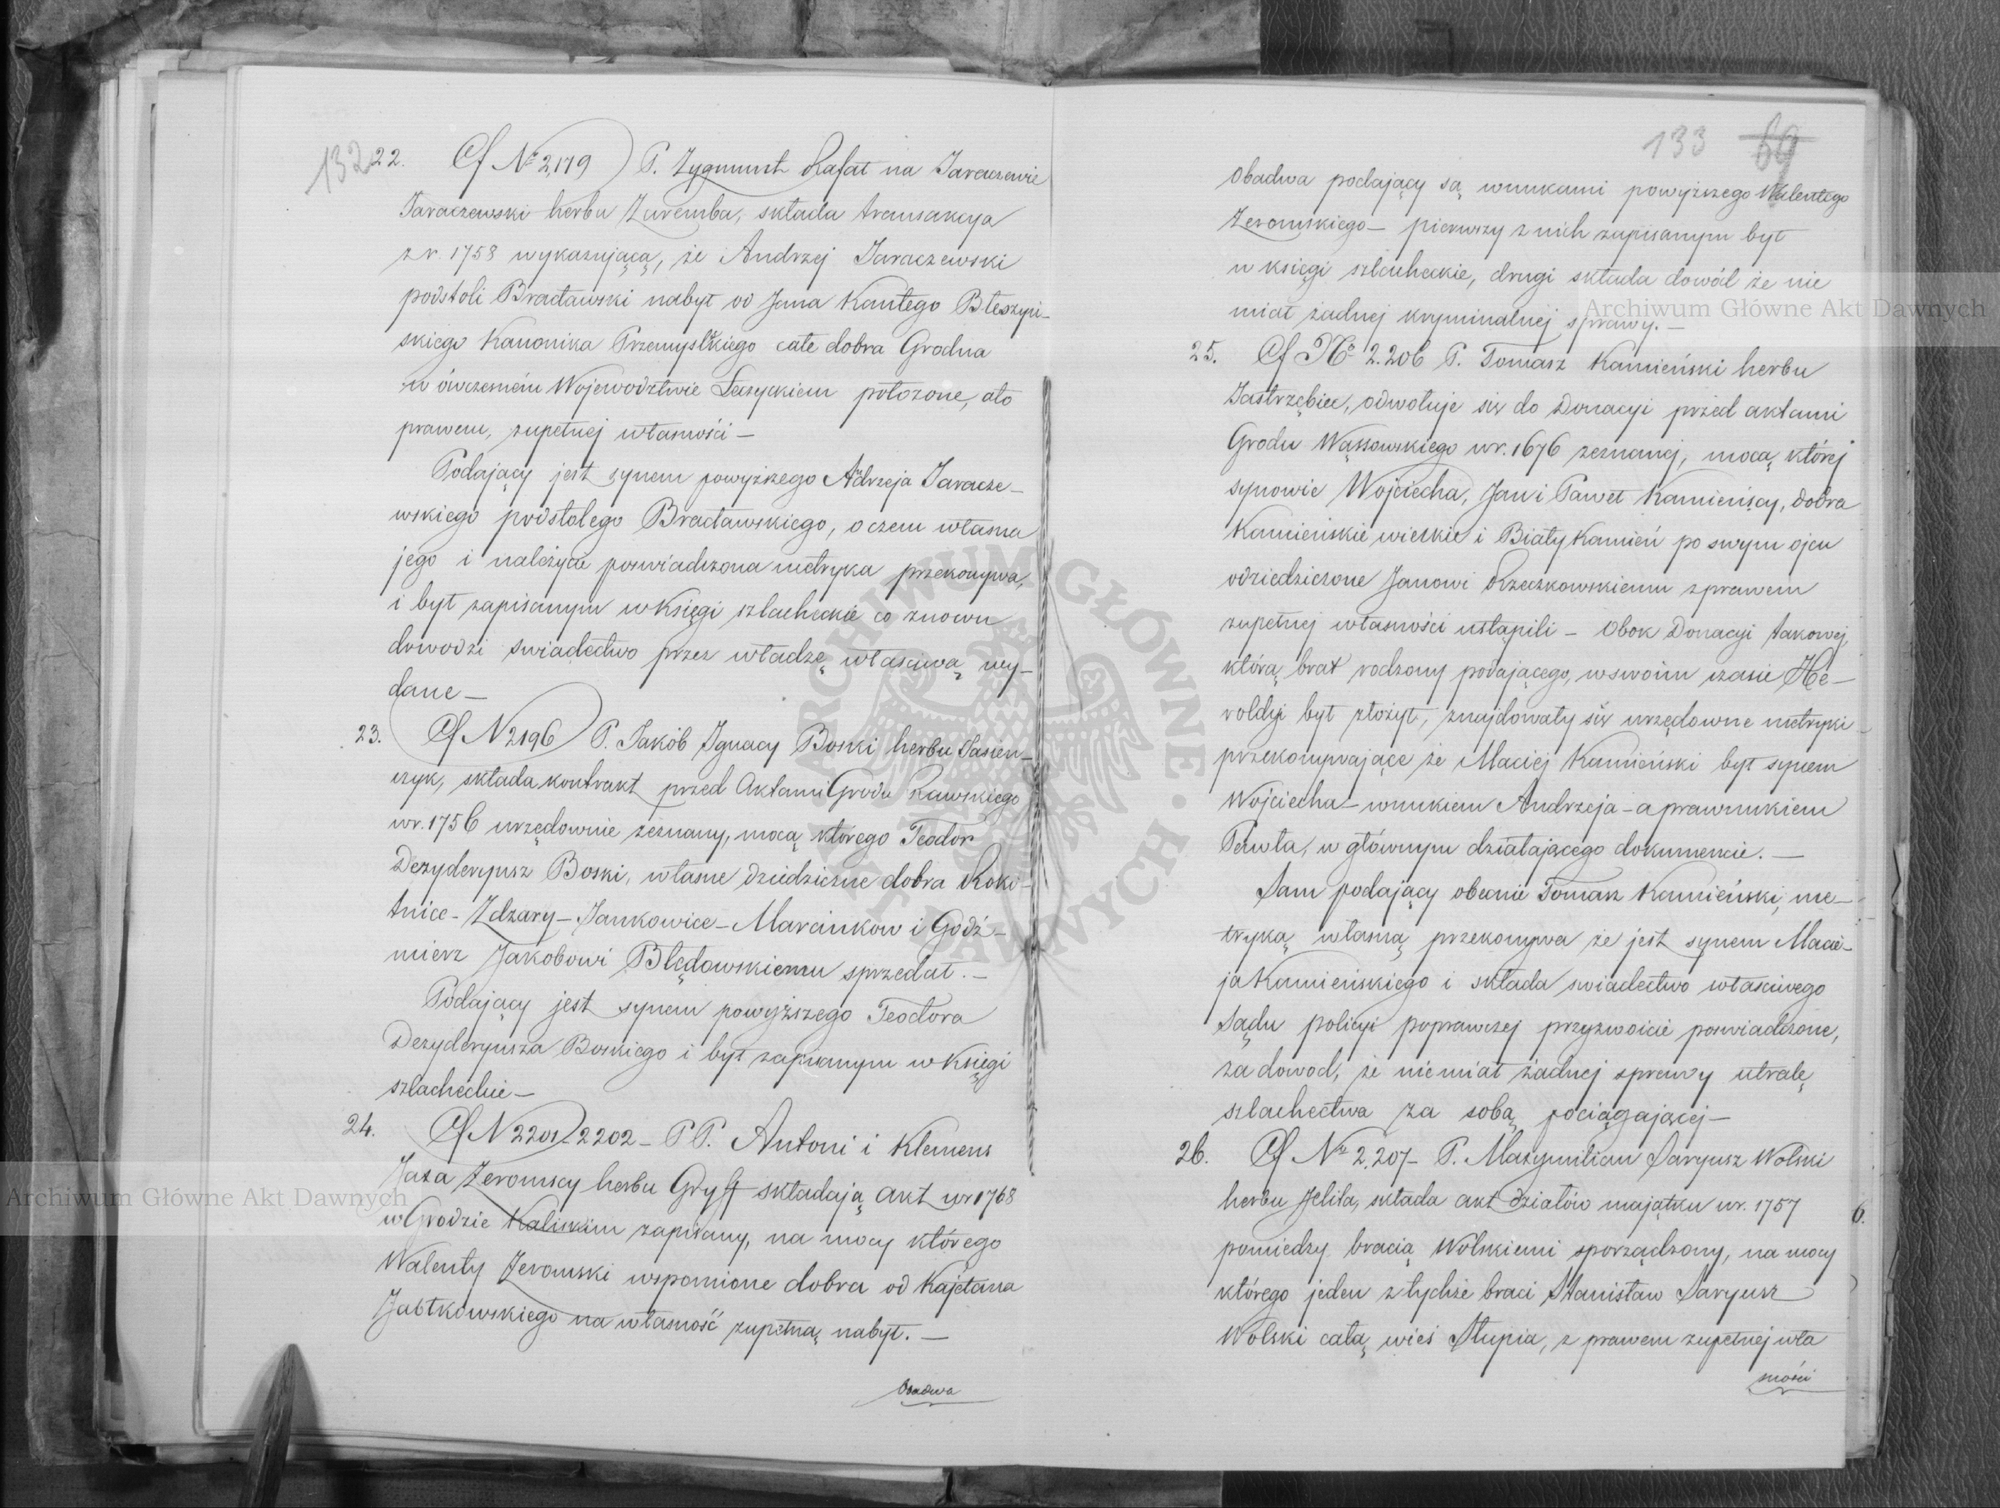 132 22. Cf № 2,179) P. Zygmunt Rafał na Jaraczewie
Jaraczewski herbu Zaremba, składa transakcya
z r. 1758 wykazującą, że Andrzej Jaraczewski
podstoli Bracławski nabył od Jana Kantego Bleszyń-
skiego Kanonika Przemyślkiego całe dobra Grodna
w ówczesném Województwie Łęczyckiem położone, a to
prawem, zupełnej własności —
Podający jest synem powyższego Adrzeja Jaracze-
wskiego podstolego Bracławskiego, o czem własna
jego i należycie poświadczona metryka przekonywa,
i był zapisanym w Księgi szlacheckie co znowu
dowodzi swiadectwo przez władzę właściwą wy-
dane —
23. Cf N 2196) P. Jakób Ignacy Boski herbu Jasień-
czyk, składa kontrakt przed Aktami Grodu Rawskiego
w r. 1756 urzędownie zeznany, mocą którego Teodor
Dezyderyusz Boski, własne dziedziczne dobra Roki-
tnice - Zdzary - Jankowice - Marcinkow i Godź-
mierz Jakobowi Błędowskiemu sprzedał. —
Podający jest synem powyższego Teodora
Dezyderyusza Boskiego i był zapisanym w Księgi
szlacheckie —
24. Cf N 2201/2202 — P P. Antoni i Klemens
Jaxa Żeromscy herbu Gryff składają akt w r 1768
w Grodzie Kaliskim zapisany, na mocy którego
Walenty Żeromski wspomione dobra od Kajetana
Jabłkowskiego na własność zupełną nabył. —
Obadwa
133 69
Obadwa podający są wnukami powyższego Walentego
Żeromskiego — pierwszy z nich zapisanym był
w księgi szlacheckie, drugi składa dowód że nie
miał żadnej kryminalnej sprawy. —
25. Cf № 2.206 P. Tomasz Kamieński herbu
Jastrzębiec, odwołuje się do Donacyi przed aktami
Grodu Wąssowskiego w r. 1676 zeznanej, mocą której
synowie Wojciecha, Jan i Paweł Kamieńscy, dobra
Kamieńskie wielkie i Biały Kamień po swym ojcu
odziedziczone Janowi Rzeczkowskiemu z prawem
zupełnej własności ustąpili — Obok Donacyi takowej,
którą brat rodzony podającego, w swoim czasie He-
roldyi był złożył, znajdowały się urzędowne metryki
przekonywające że Maciej Kamieński był synem
Wojciecha — wnukiem Andrzeja — a prawnukiem
Pawła, w głównym działającego dokumencie. —
Sam podający obecnie Tomasz Kamieński, me-
tryką własną przekonywa że jest synem Macie-
ja Kamieńskiego i składa swiadectwo właściwego
Sądu policyi poprawczej przyzwoicie poswiadczone,
za dowod, że nie miał żadnej sprawy utratę
szlachectwa za sobą pociągającej —
26. Cf № 2,207 — P. Maxymilian Saryusz Wolski
herbu Jelita, składa akt działów majątku w r. 1757
6.
pomiędzy bracią Wolskiemi sporządzony, na mocy
którego jeden z tychże braci Stanisław Saryusz
Wolski całą wieś Słupia, z prawem zupełnej wła
sności
Archiwum Główne Akt Dawnych
Archiwum Główne Akt Dawnych
ARCHIWUM GŁÓWNE AKT DAWNYCH